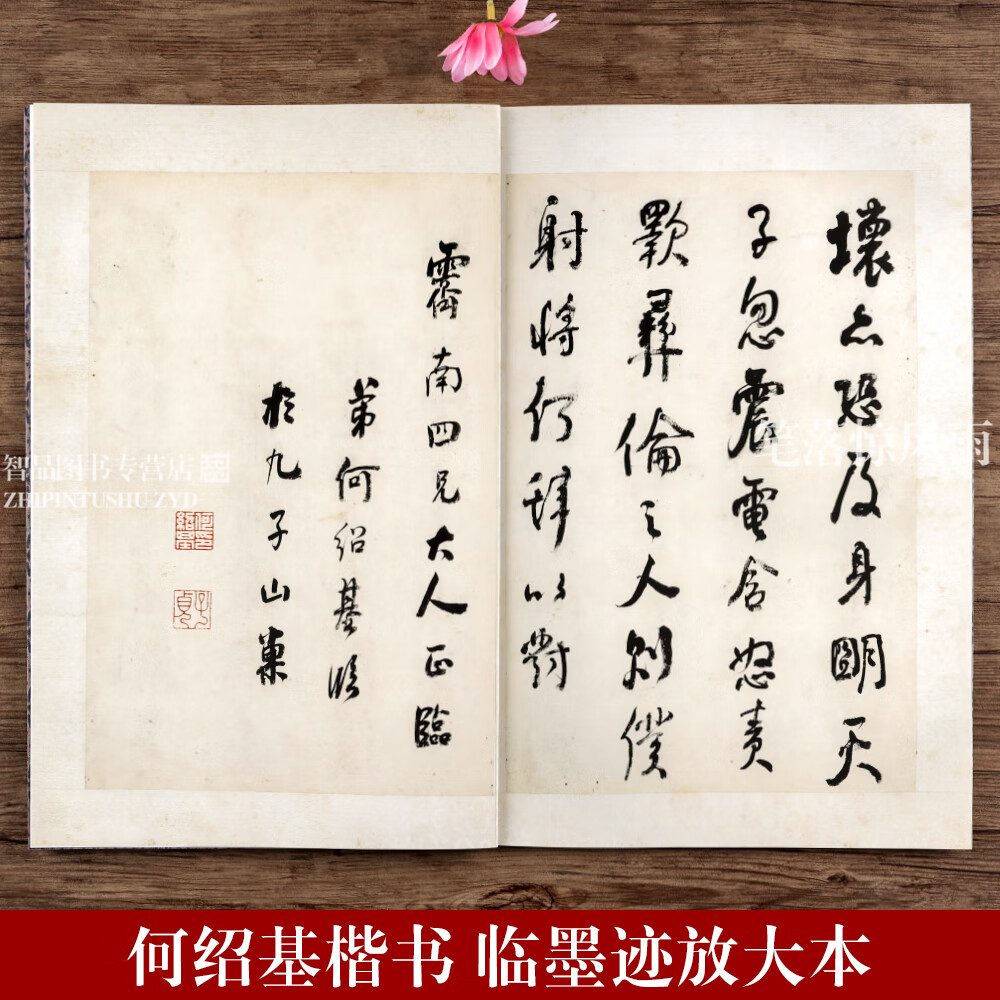 壞亦恐及身朙天
子忽震電含怒責
斁彝倫之人則僕
射將何辭以對
霽南四兄大人正臨
弟何紹基
於九子山巢
何紹基印
子貞
智品图书专营店
ZHIPINTUSHU ZYD
笔落惊风雨
何绍基楷书 临墨迹放大本